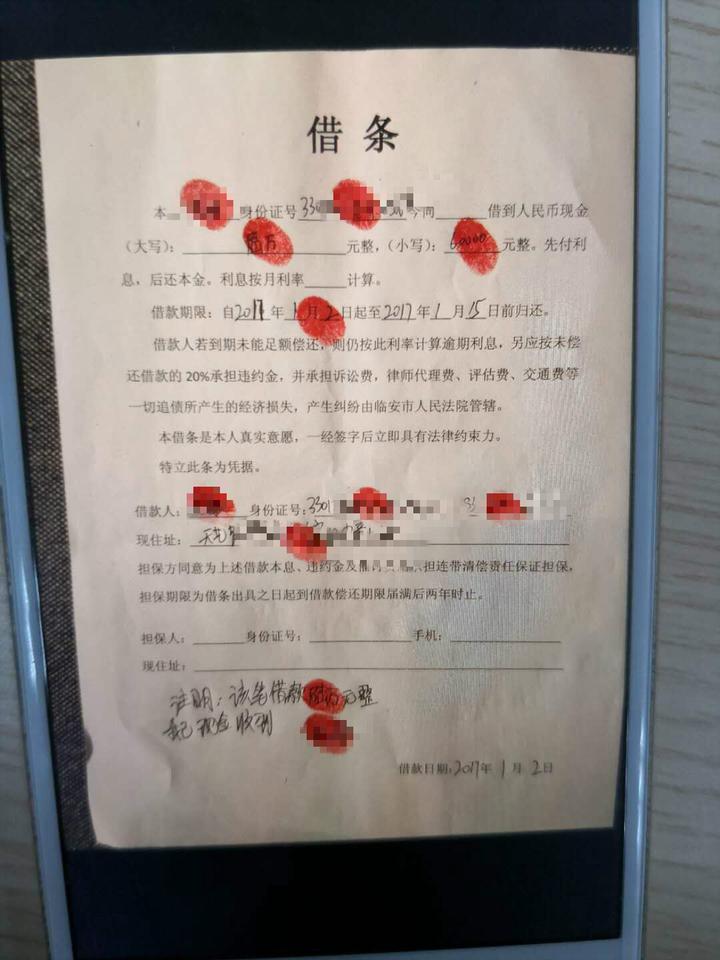 借条
本 身份证号330 今向 借到人民币现金
(大写): 万 元整,(小写):60000 元整。先付利
息,后还本金。利息按月利率 计算。
借款期限:自2017年1月2日起至2017年1月15日前归还。
借款人若到期未能足额偿还,则仍按此利率计算逾期利息,另应按未偿
还借款的20%承担违约金,并承担诉讼费,律师代理费、评估费、交通费等
一切追债所产生的经济损失,产生纠纷由临安市人民法院管辖。
本借条是本人真实意愿,一经签字后立即具有法律约束力。
特立此条为凭据。
借款人: 身份证号:3301
现住址:
担保方同意为上述借款本息、违约金及 担连带清偿责任保证担保,
担保期限为借条出具之日起到借款偿还期限届满后两年时止。
担保人: 身份证号: 手机:
现住址:
注明:该笔借款 万元整
现金收到
借款日期:2017年1月2日